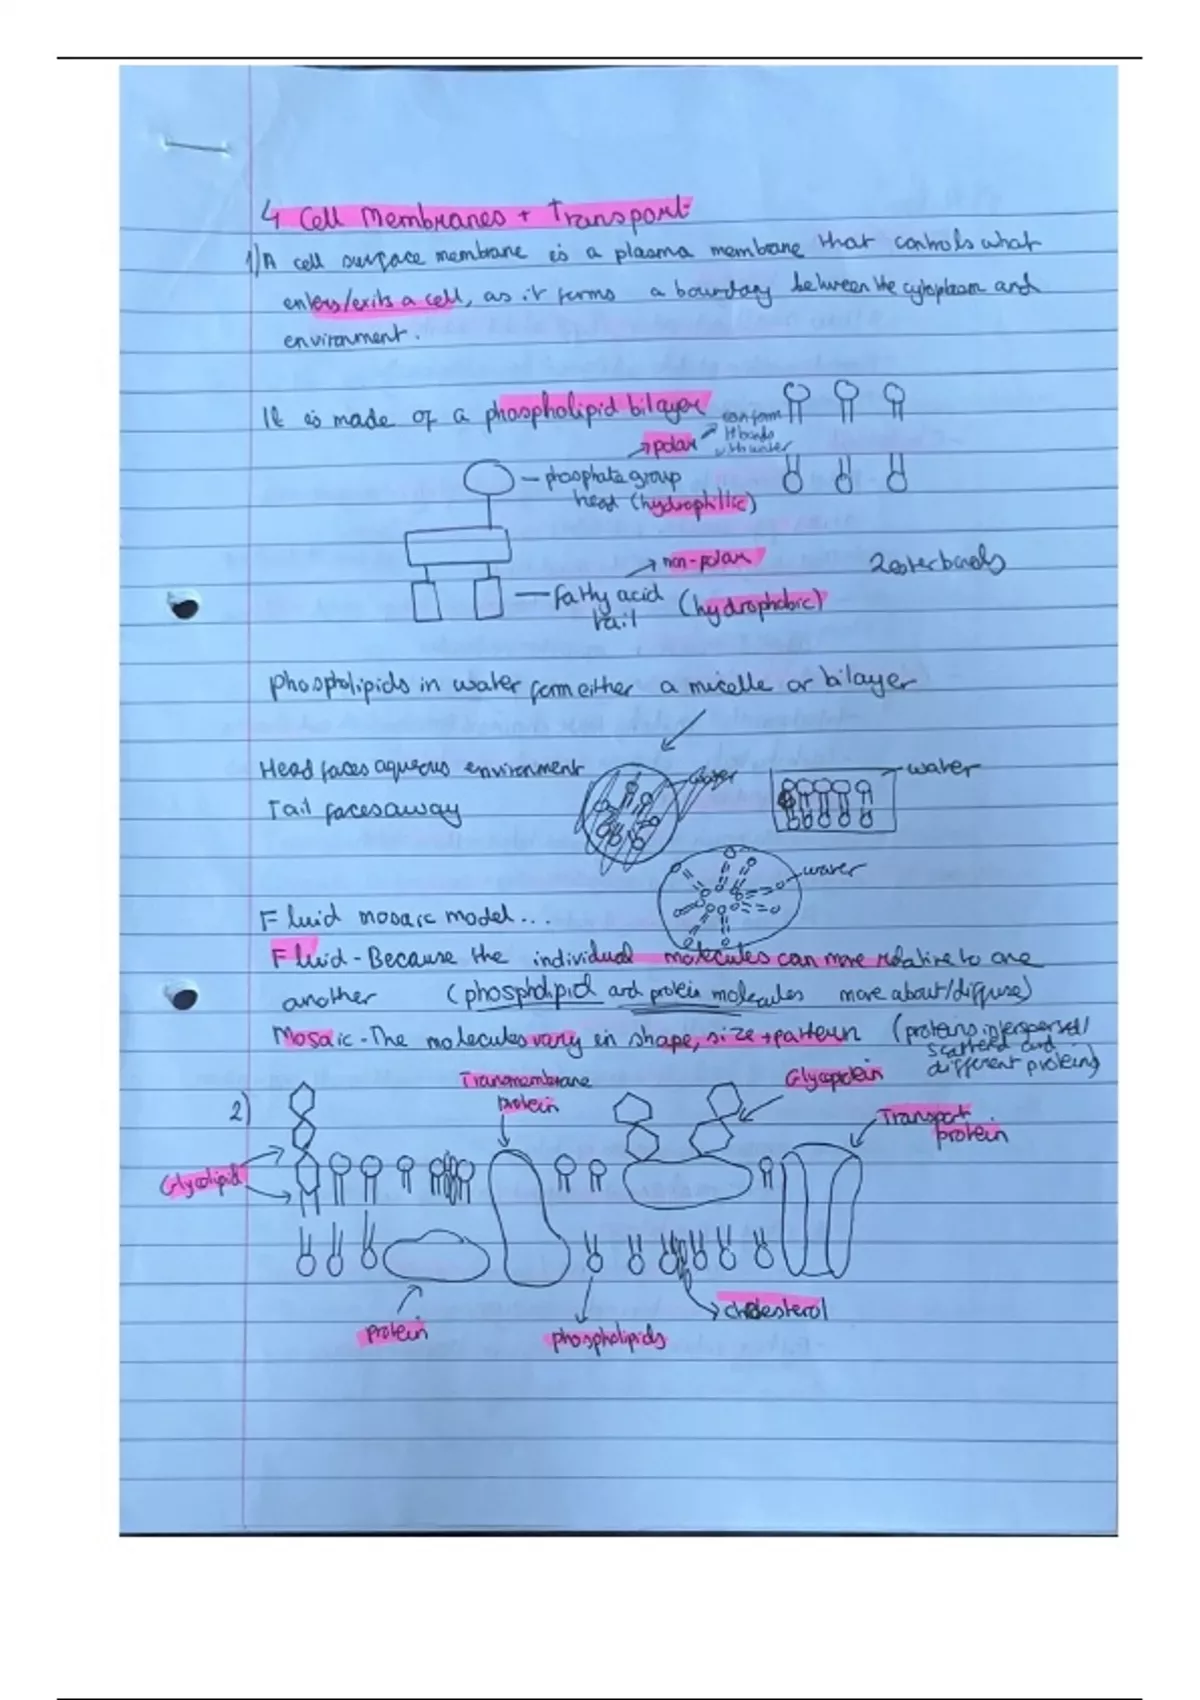 4 Cell Membranes + Transport
1) A cell surface membrane is a plasma membrane that controls what
enters/exits a cell, as it forms a boundary between the cytoplasm and
environment.
It is made of a phospholipid bilayer
→ polar → can form
H bonds
with water
- phosphate group
head (hydrophilic)
→ non-polar
2 ester bonds
- fatty acid
tail (hydrophobic)
Phospholipids in water form either a micelle or bilayer
Head faces aqueous environment
Tail faces away
water
water
water
Fluid mosaic model...
Fluid - Because the individual molecules can move relative to one
another (phospholipid and protein molecules move about/diffuse)
Mosaic - The molecules vary in shape, size + pattern (proteins interspersed/
scattered and
different proteins)
2)
Transmembrane
protein
Glycoprotein
Transport
protein
Glycolipid
protein
phospholipids
cholesterol